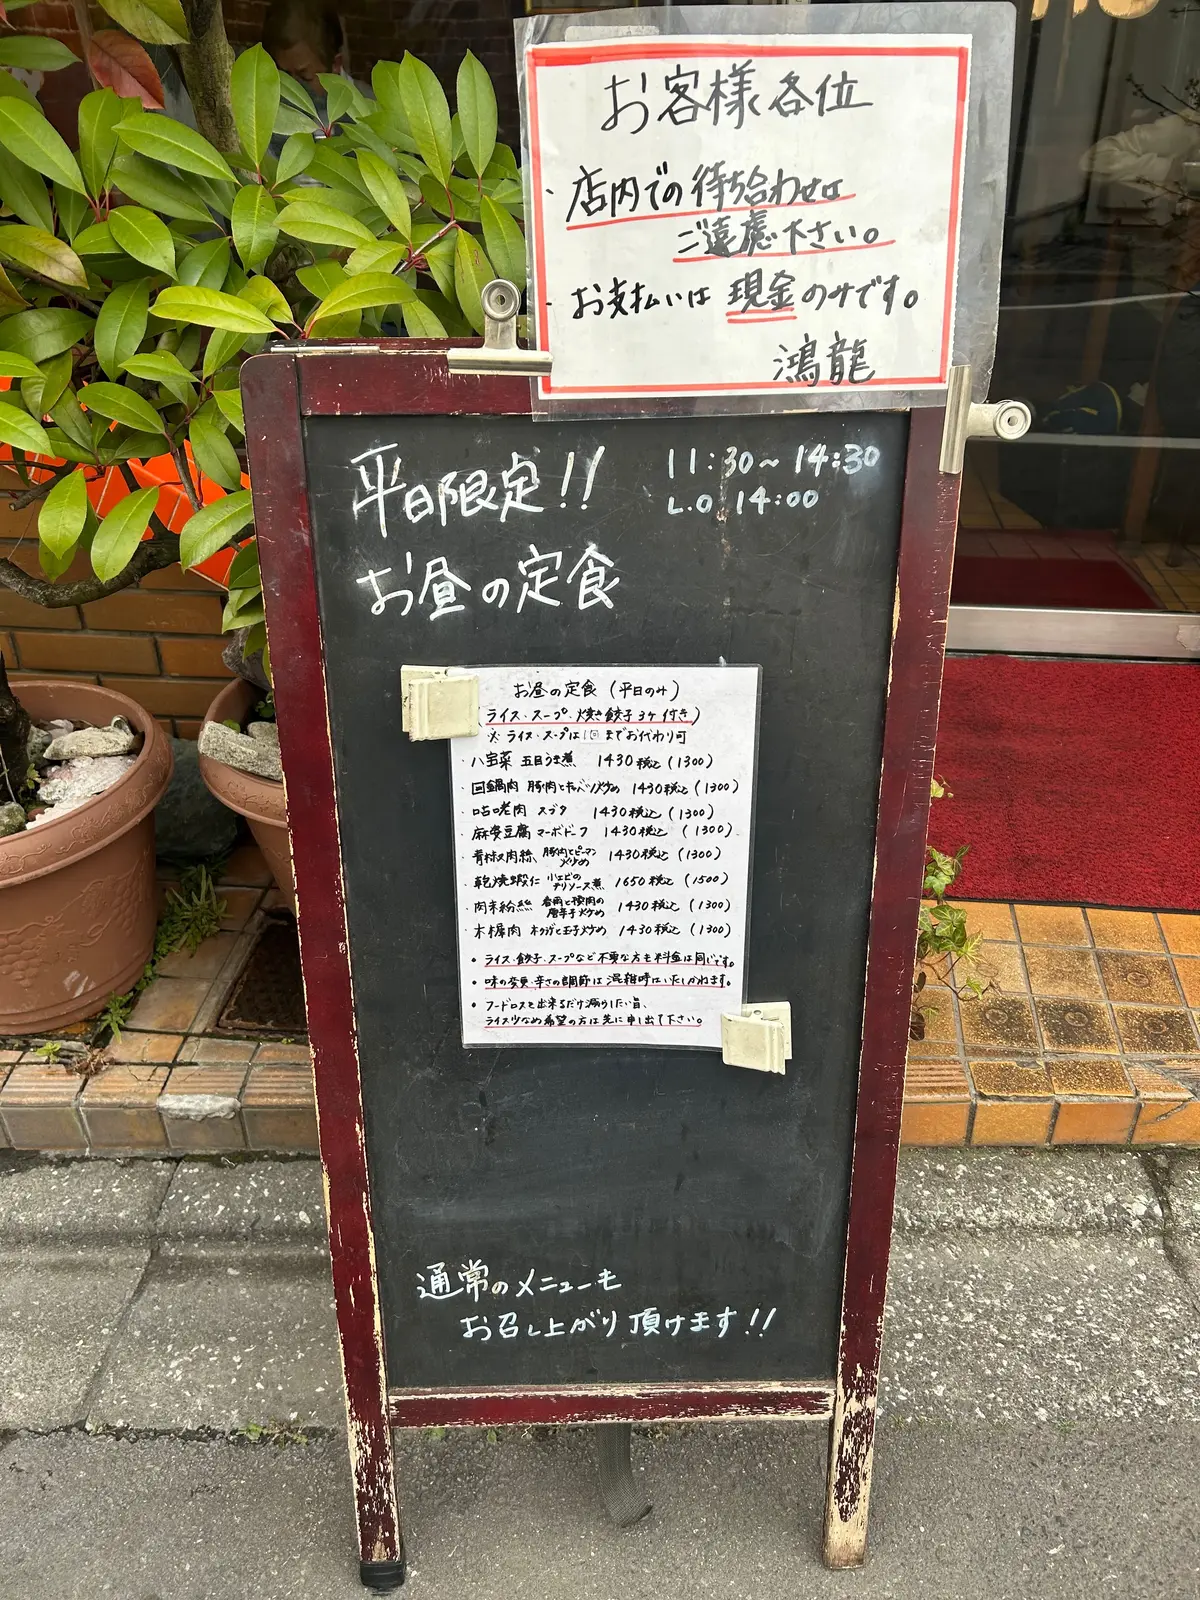 お客様各位
・店内での待ち合わせは
ご遠慮下さい。
・お支払いは現金のみです。
鴻龍
平日限定!! 11:30~14:30
L.O 14:00
お昼の定食
お昼の定食(平日のみ)
(ライス・スープ・焼き餃子3ケ付き)
※ライス・スープは1回までお代わり可
・八宝菜 五目うま煮 1430税込(1300)
・回鍋肉 豚肉とキャベツ炒め 1430税込(1300)
・咕咾肉 スブタ 1430税込(1300)
・麻婆豆腐 マーボドーフ 1430税込(1300)
・青椒肉絲 豚肉とピーマン炒め 1430税込(1300)
・乾焼蝦仁 小エビのチリソース煮 1650税込(1500)
・肉末粉絲 春雨と挽肉の唐辛子炒め 1430税込(1300)
・木樨肉 キクラゲと玉子炒め 1430税込(1300)
・ライス・餃子・スープなど不要な方も料金は同じです。
・味の変更・辛さの調節は混雑時はいたしかねます。
・フードロスを出来るだけ減らしたい旨、
ライス少なめ希望の方は先に申し出て下さい。
通常のメニューも
お召し上がり頂けます!!